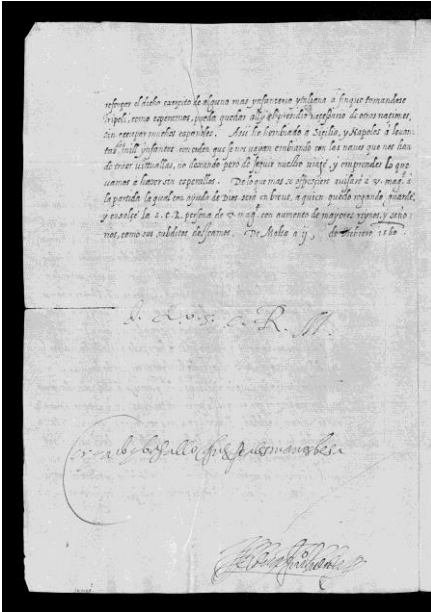 reforçar el dicho exercito de alguno mas ynfanteria ytaliana á fin que tomandose
Tripoli, como esperamos, pueda quedar ally el presidio necessario de otras naciones,
sin occupar muchos españoles. Assi he embiado a Sicilia, y Napoles á levan
tar mill ynfantes con orden que se nos vayan embiando con las naves que nos han
de traer victuallas, no dexando pero de seguir nuestro viaje, y emprender lo que
vamos a hazer sin esperallas. De lo que mas se offresciere avisaré á v. magd. á
la partida la qual con ayuda de Dios será en breve, a quien quedo rogando guarde,
y ensalçe la S.C.R. persona de v. magd. con aumento de mayores reynos, y seño
rios, como sus subditos desseamos. De Malta a ij, de 1560.
S. C. R. M.
vasallo que sus manos besa